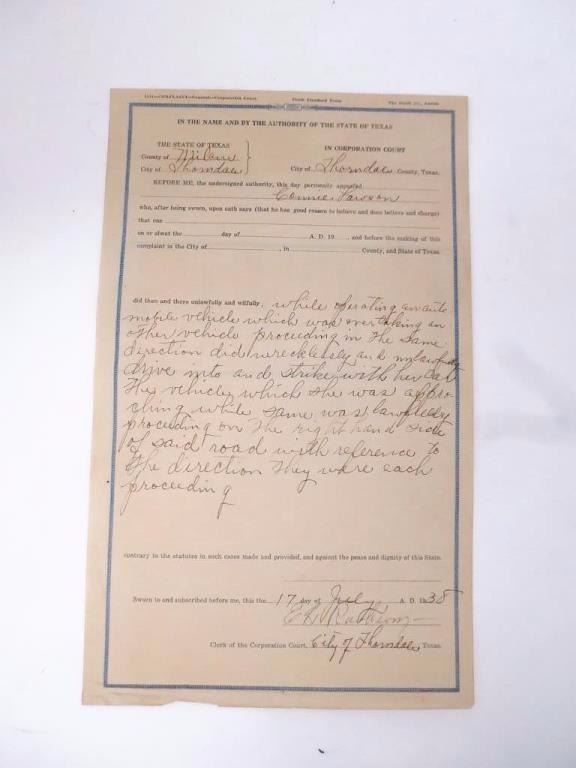 IN THE NAME AND BY THE AUTHORITY OF THE STATE OF TEXAS
THE STATE OF TEXAS
County of Milam
City of Thorndale
IN CORPORATION COURT
City of Thorndale County, Texas.
BEFORE ME, the undersigned authority, this day personally appeared
who, after being sworn, upon oath says (that he has good reason to believe and does believe and charge)
that one
on or about the day of A. D. 19 , and before the making of this
complaint in the City of , in County, and State of Texas.
did then and there unlawfully and wilfully; while operating an auto-
mobile vehicle which was overtaking an
other vehicle proceeding in the same
direction did wrecklessly and unlawfully
drive into and strike with her car
the vehicle which she was appro
ching while same was lawfully
proceeding on the right hand side
of said road with reference to
the direction they were each
proceeding
contrary to the statutes in such cases made and provided, and against the peace and dignity of this State.
Sworn to and subscribed before me, this the 17 day of July A. D. 1938
Clerk of the Corporation Court, City of Thorndale, Texas.